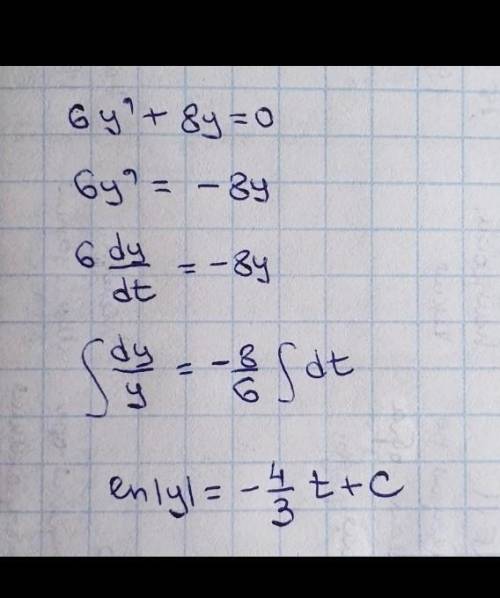 6y' + 8y = 0
6y' = -8y
6 dy/dt = -8y
∫ dy/y = -8/6 ∫ dt
ln|y| = -4/3 t + C